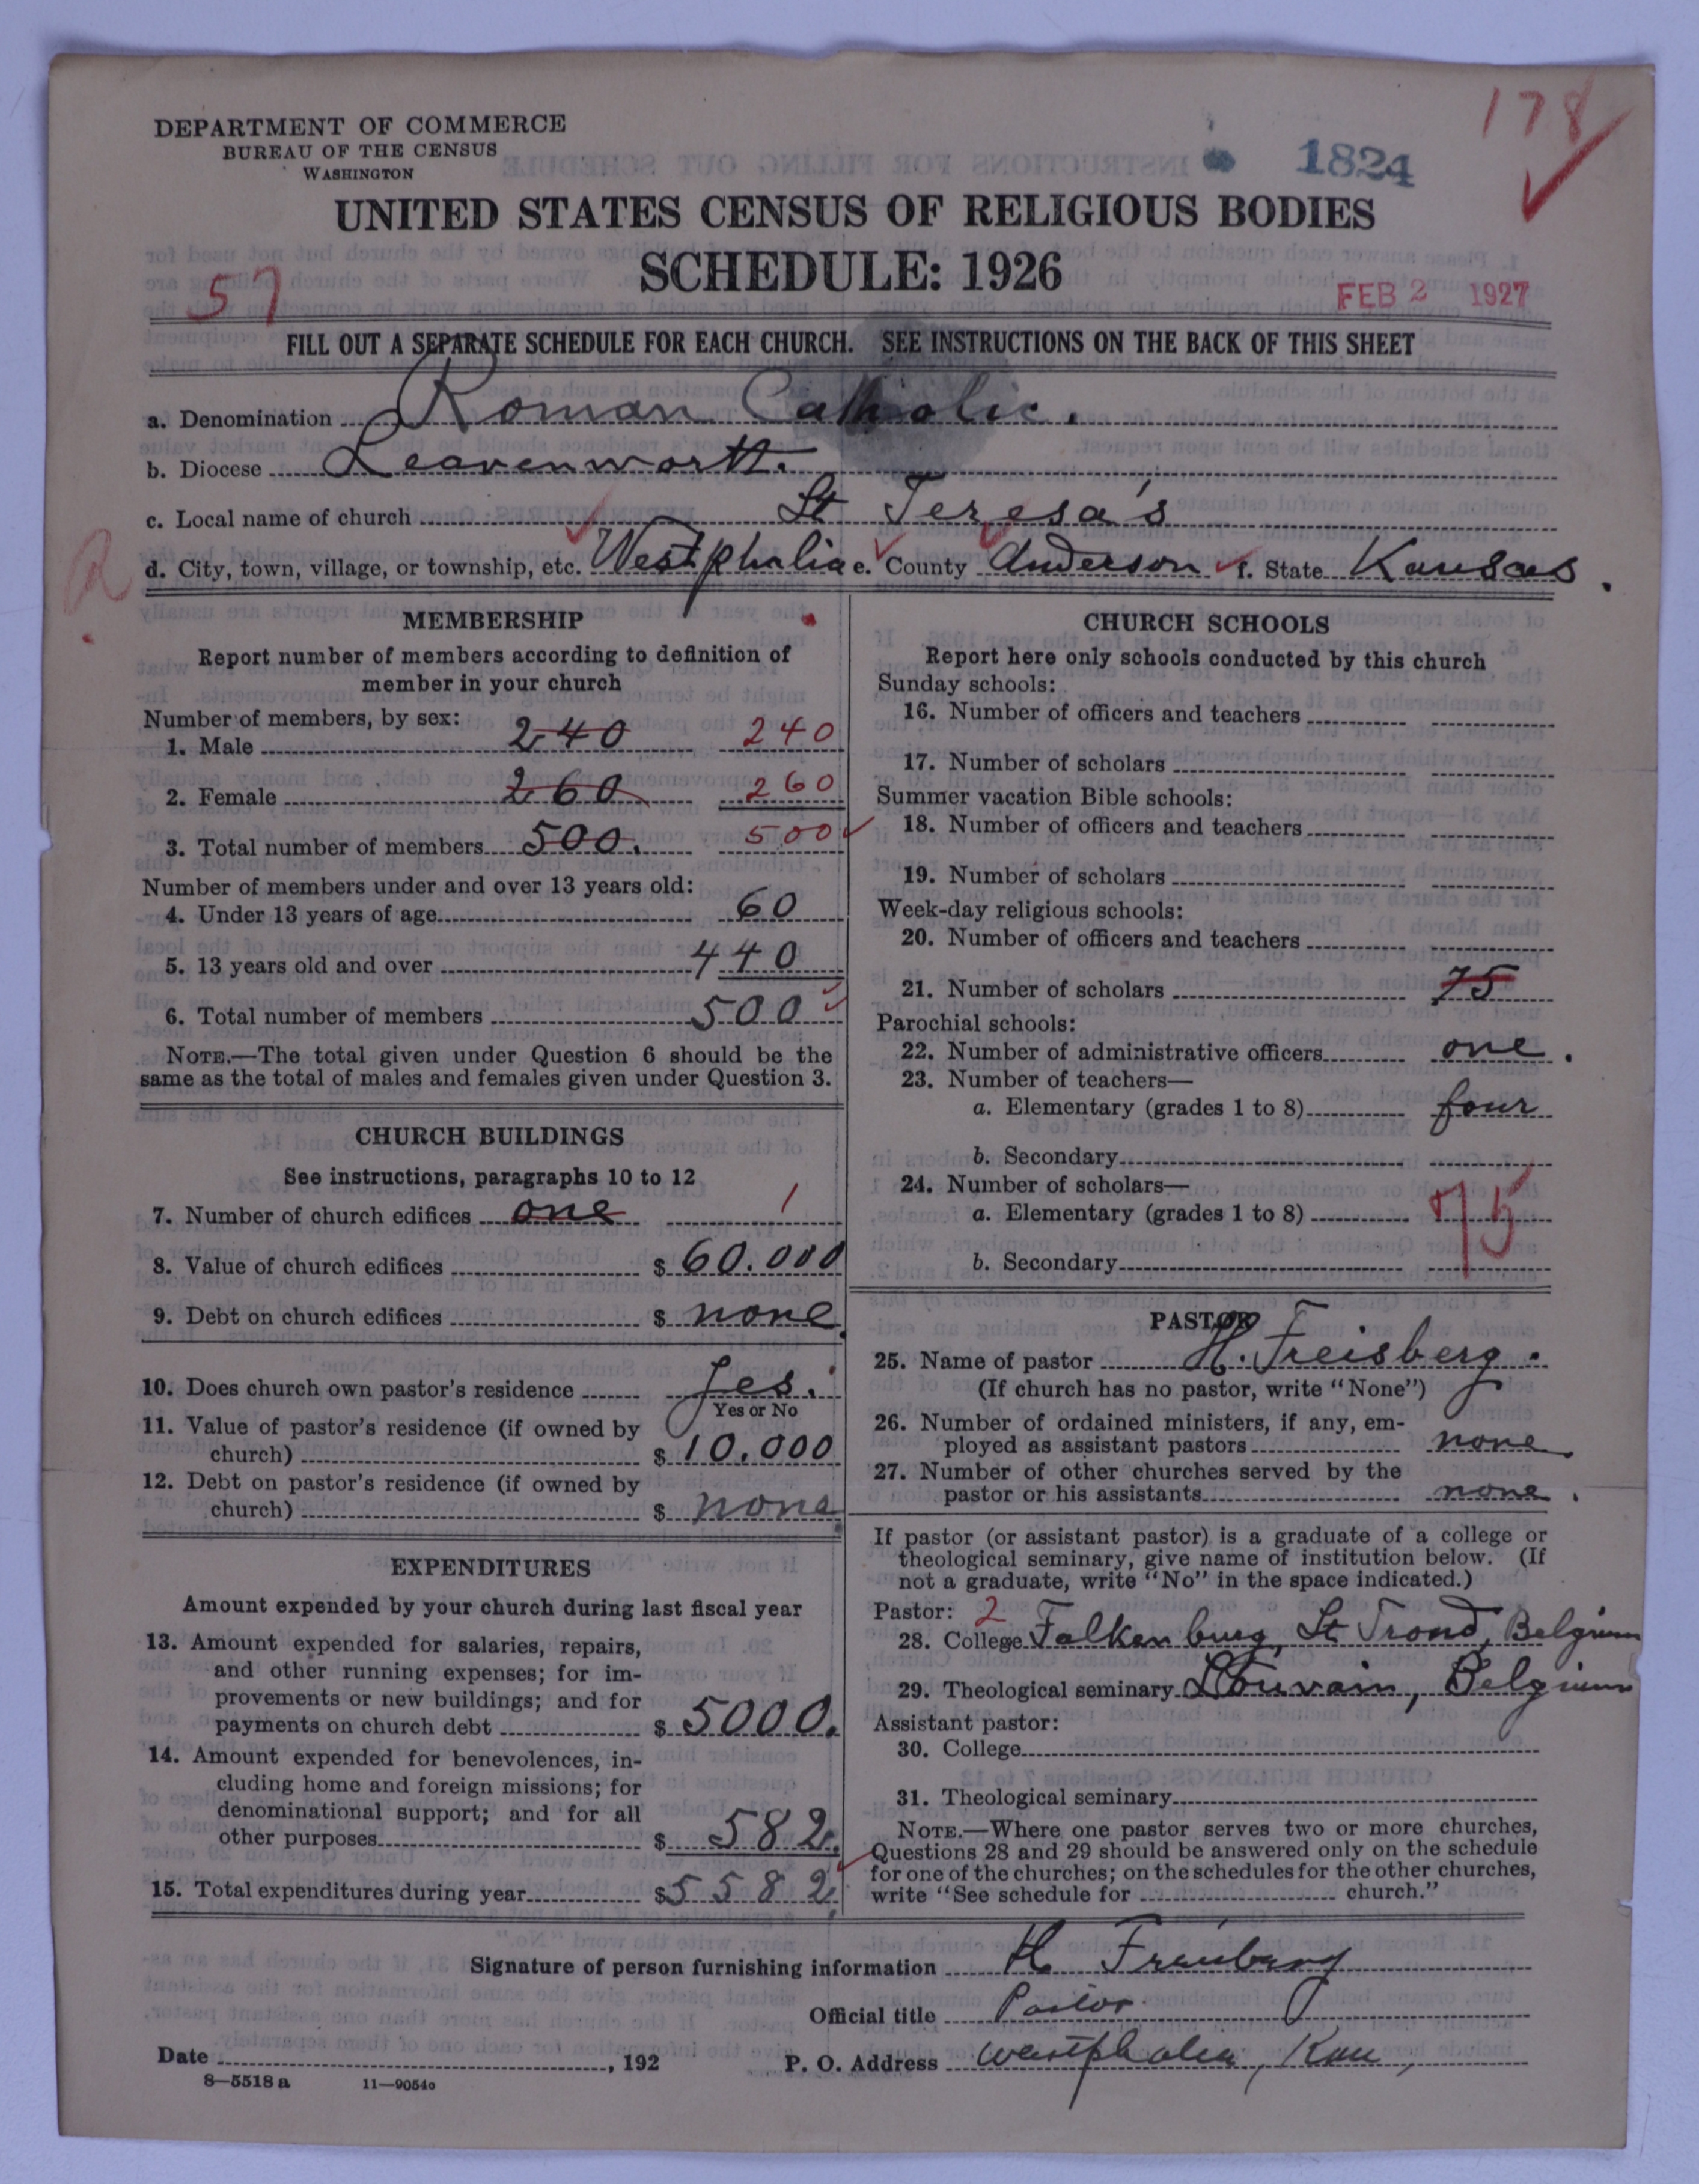 DEPARTMENT OF COMMERCE
BUREAU OF THE CENSUS
WASHINGTON
178
1824
UNITED STATES CENSUS OF RELIGIOUS BODIES
SCHEDULE: 1926
57
FEB 2 1927
FILL OUT A SEPARATE SCHEDULE FOR EACH CHURCH. SEE INSTRUCTIONS ON THE BACK OF THIS SHEET
a. Denomination Roman Catholic.
b. Diocese Leavenworth.
c. Local name of church St Teresa's
d. City, town, village, or township, etc. Westphalia e. County Anderson f. State Kansas.
MEMBERSHIP
Report number of members according to definition of
member in your church
Number of members, by sex:
1. Male 240 240
2. Female 260 260
3. Total number of members 500. 500
Number of members under and over 13 years old:
4. Under 13 years of age 60
5. 13 years old and over 440
6. Total number of members 500
NOTE.—The total given under Question 6 should be the
same as the total of males and females given under Question 3.
CHURCH BUILDINGS
See instructions, paragraphs 10 to 12
7. Number of church edifices one 1
8. Value of church edifices $ 60.000
9. Debt on church edifices $ none.
10. Does church own pastor's residence Yes.
Yes or No
11. Value of pastor's residence (if owned by
church) $ 10.000
12. Debt on pastor's residence (if owned by
church) $ none
EXPENDITURES
Amount expended by your church during last fiscal year
13. Amount expended for salaries, repairs,
and other running expenses; for im-
provements or new buildings; and for
payments on church debt $ 5000.
14. Amount expended for benevolences, in-
cluding home and foreign missions; for
denominational support; and for all
other purposes $ 582.
15. Total expenditures during year $ 5582.
CHURCH SCHOOLS
Report here only schools conducted by this church
Sunday schools:
16. Number of officers and teachers
17. Number of scholars
Summer vacation Bible schools:
18. Number of officers and teachers
19. Number of scholars
Week-day religious schools:
20. Number of officers and teachers
21. Number of scholars 75
Parochial schools:
22. Number of administrative officers one.
23. Number of teachers—
a. Elementary (grades 1 to 8) four
b. Secondary
24. Number of scholars—
a. Elementary (grades 1 to 8) 75
b. Secondary
PASTOR
25. Name of pastor H. Freisberg.
(If church has no pastor, write "None")
26. Number of ordained ministers, if any, em-
ployed as assistant pastors none
27. Number of other churches served by the
pastor or his assistants none.
If pastor (or assistant pastor) is a graduate of a college or
theological seminary, give name of institution below. (If
not a graduate, write "No" in the space indicated.)
Pastor: 2
28. College Falkenburg, St Trond, Belgium
29. Theological seminary Louvain, Belgium
Assistant pastor:
30. College
31. Theological seminary
NOTE.—Where one pastor serves two or more churches,
Questions 28 and 29 should be answered only on the schedule
for one of the churches; on the schedules for the other churches,
write "See schedule for church."
Signature of person furnishing information H Freisberg
Official title Pastor
Date , 192 P. O. Address Westphalia, Kan,
8—5518 a 11—9054o